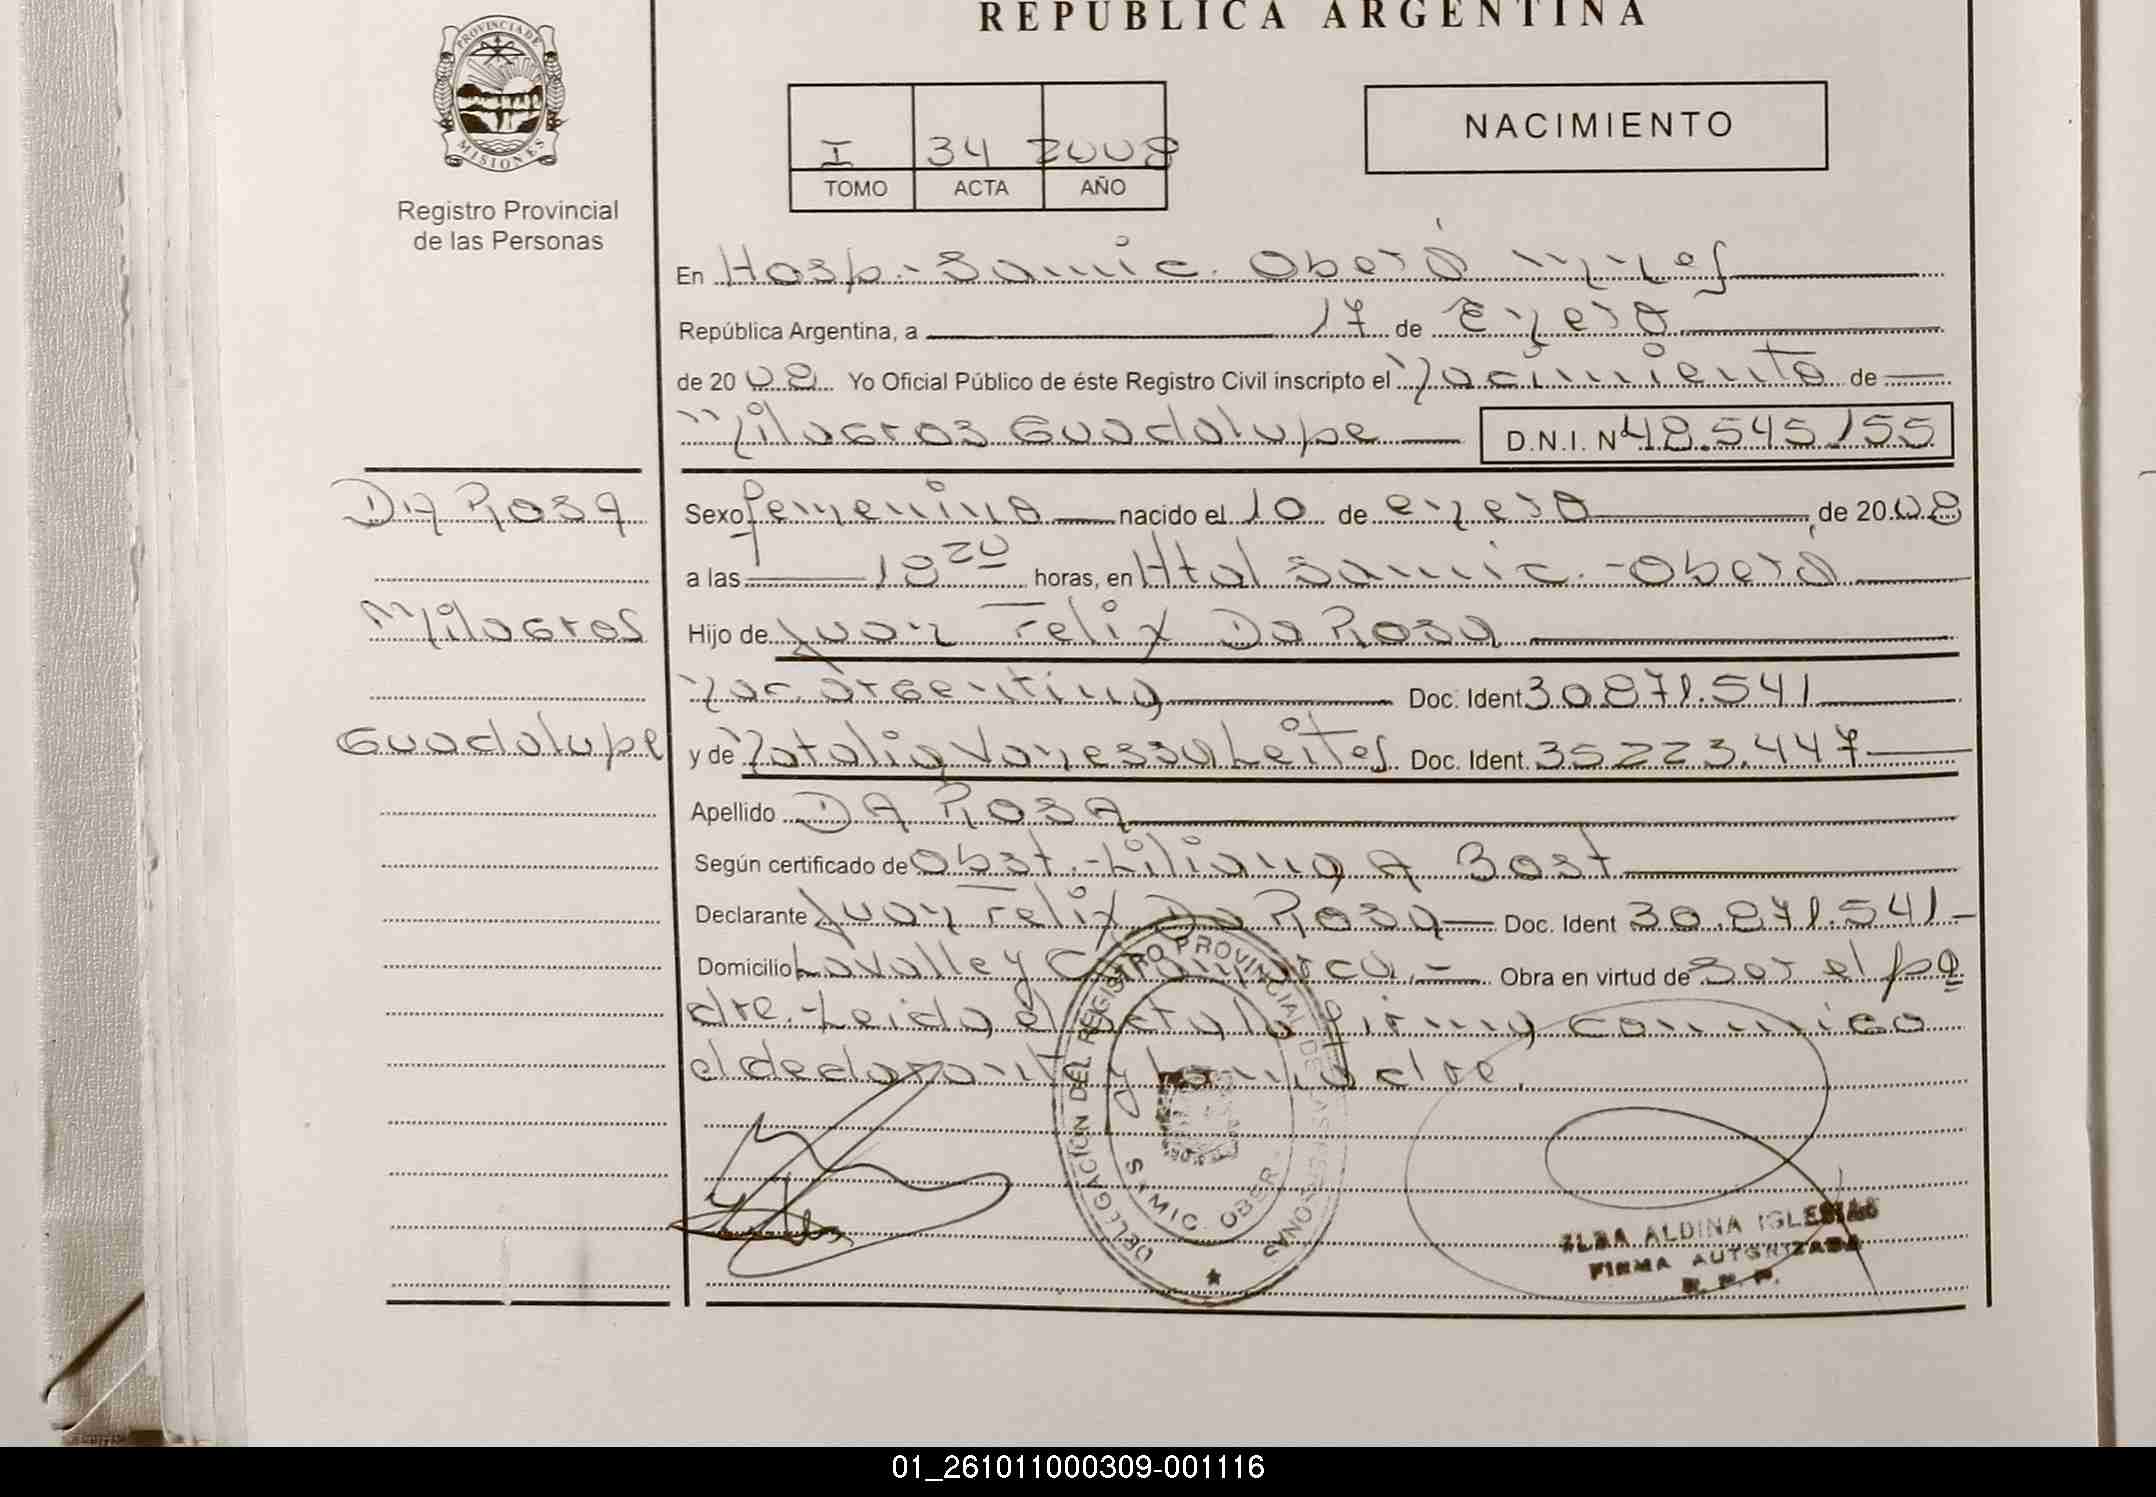 REPUBLICA ARGENTINA
PROVINCIA DE
MISIONES
Registro Provincial
de las Personas
I 34 2008
TOMO ACTA AÑO
NACIMIENTO
En Hosp.-Samic. Oberá Mnes
República Argentina, a 17 de Enero
de 2008 Yo Oficial Público de éste Registro Civil inscripto el Nacimiento de
Milagros Guadalupe D.N.I. Nº 48.545.155
DA ROSA
Milagros
Guadalupe
Sexo femenino nacido el 10 de enero de 2008
a las 18 20 horas, en Htal Samic.-Oberá
Hijo de Juan Felix Da Rosa
Nac. argentina Doc. Ident. 30.871.541
y de Natalia Vanessa Leites Doc. Ident. 35223.447
Apellido DA ROSA
Según certificado de Obst.-Liliana A Bost
Declarante Juan Felix Da Rosa Doc. Ident 30.871.541-
Domicilio Lavalle y Catamarca.- Obra en virtud de Ser el pa
dre.-Leida el acta la firma conmigo
el declarante y la madre.
DELEGACIÓN DEL REGISTRO PROVINCIAL DE LAS PERSONAS
SAMIC. OBER
ELBA ALDINA IGLESIAS
FIRMA AUTORIZADA
R. P. P.
01_261011000309-001116